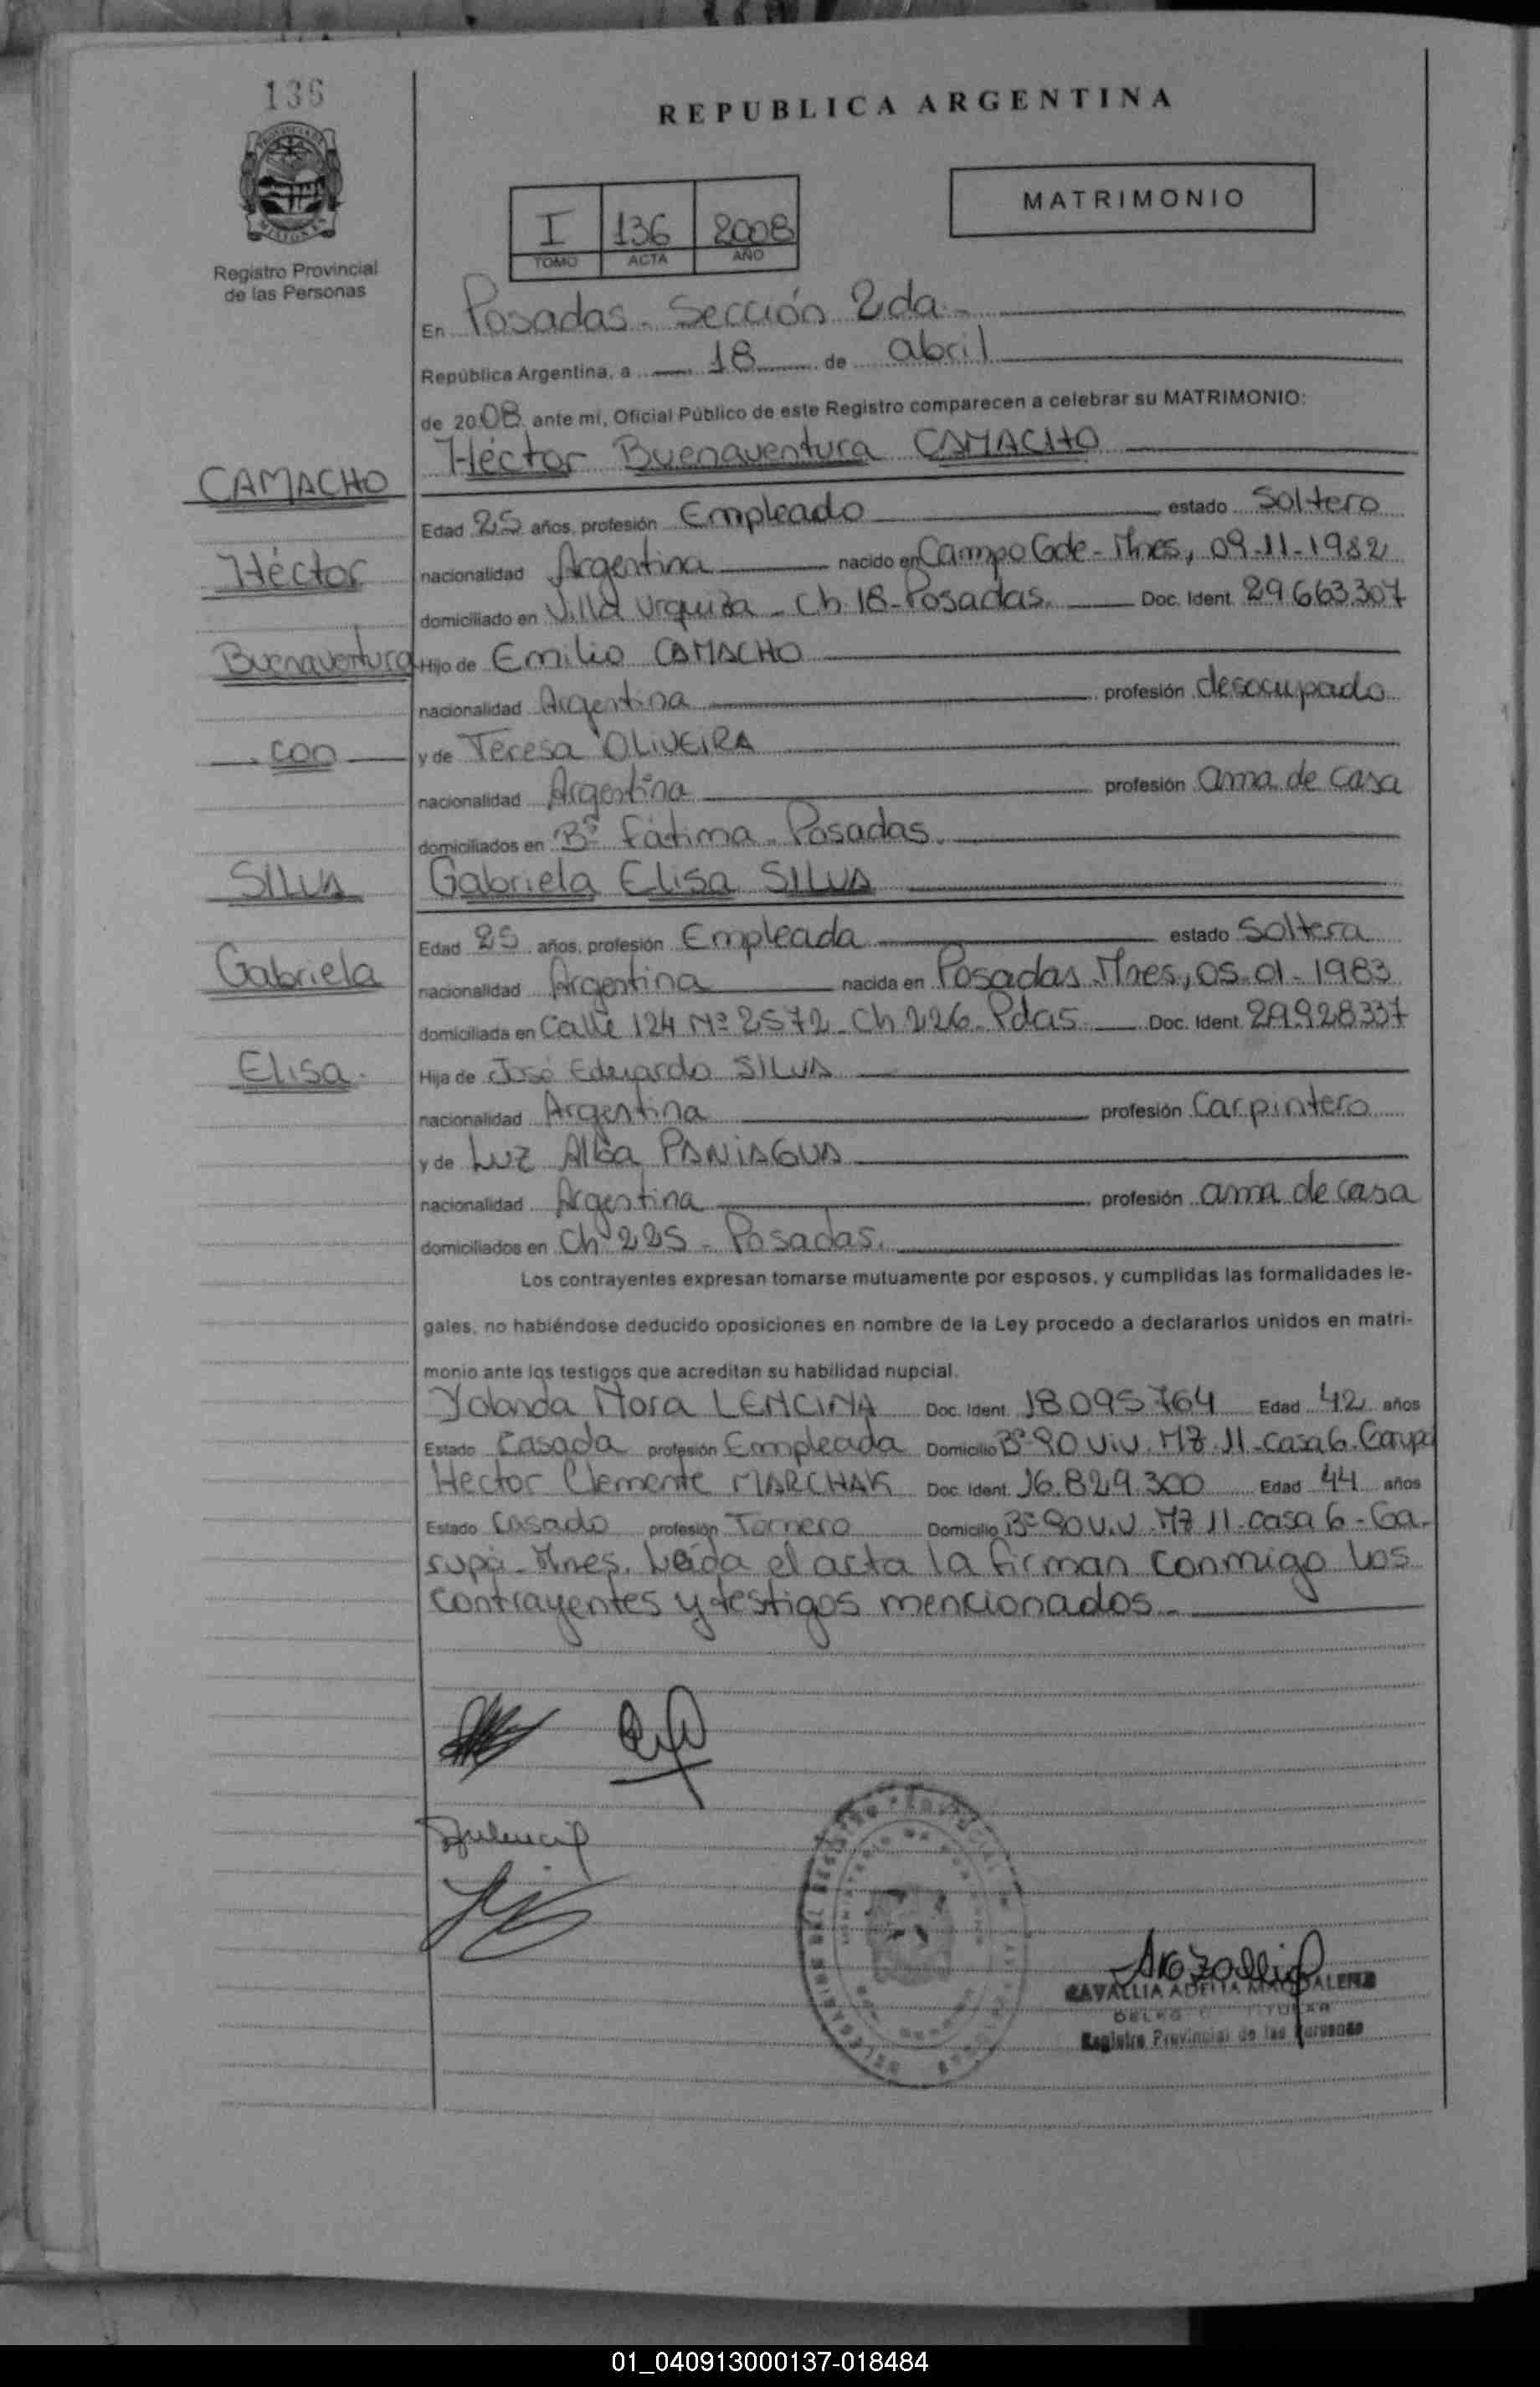 136
REPUBLICA ARGENTINA
MATRIMONIO
I 136 2008
TOMO ACTA AÑO
Registro Provincial
de las Personas
En Posadas - Sección 2da.-
República Argentina, a 18 de abril
de 2008 ante mi, Oficial Público de este Registro comparecen a celebrar su MATRIMONIO:
Héctor Buenaventura CAMACHO
CAMACHO
Edad 25 años, profesión Empleado estado Soltero
Héctor
nacionalidad Argentina nacido en Campo Gde - Mnes, 09-11-1982
domiciliado en Villa Urquiza - Ch 18 - Posadas. Doc. Ident. 29.663.307
Buenaventura
Hijo de Emilio CAMACHO
nacionalidad Argentina profesión desocupado
con
y de Teresa OLIVEIRA
nacionalidad Argentina profesión ama de casa
domiciliados en Bº Fátima - Posadas.
SILVA
Gabriela Elisa SILVA
Edad 25 años, profesión Empleada estado Soltera
Gabriela
nacionalidad Argentina nacida en Posadas. Mnes, 05-01-1983
domiciliada en Calle 124 Nº 2572 - Ch 226 - Pdas Doc. Ident. 29.928337
Elisa.
Hija de José Eduardo SILVA
nacionalidad Argentina profesión Carpintero
y de Luz Alba PANIAGUA
nacionalidad Argentina profesión ama de casa
domiciliados en Ch 225 - Posadas.
Los contrayentes expresan tomarse mutuamente por esposos, y cumplidas las formalidades le-
gales, no habiéndose deducido oposiciones en nombre de la Ley procedo a declararlos unidos en matri-
monio ante los testigos que acreditan su habilidad nupcial.
Yolanda Nora LENCINA Doc. Ident. 18.095.764 Edad 42 años
Estado Casada profesión Empleada Domicilio Bº 90 Viv. Mz. 11 - Casa 6. Garupá
Hector Clemente MARCHAK Doc. Ident. 16.829.300 Edad 44 años
Estado Casado profesión Tornero Domicilio Bº 90 V.V. Mz 11 - Casa 6 - Ga-
rupá - Mnes. Leída el acta la firman conmigo los
contrayentes y testigos mencionados.-
CAVALLIA ADELIA MAGDALENA
Registro Provincial de las Personas
01_040913000137-018484